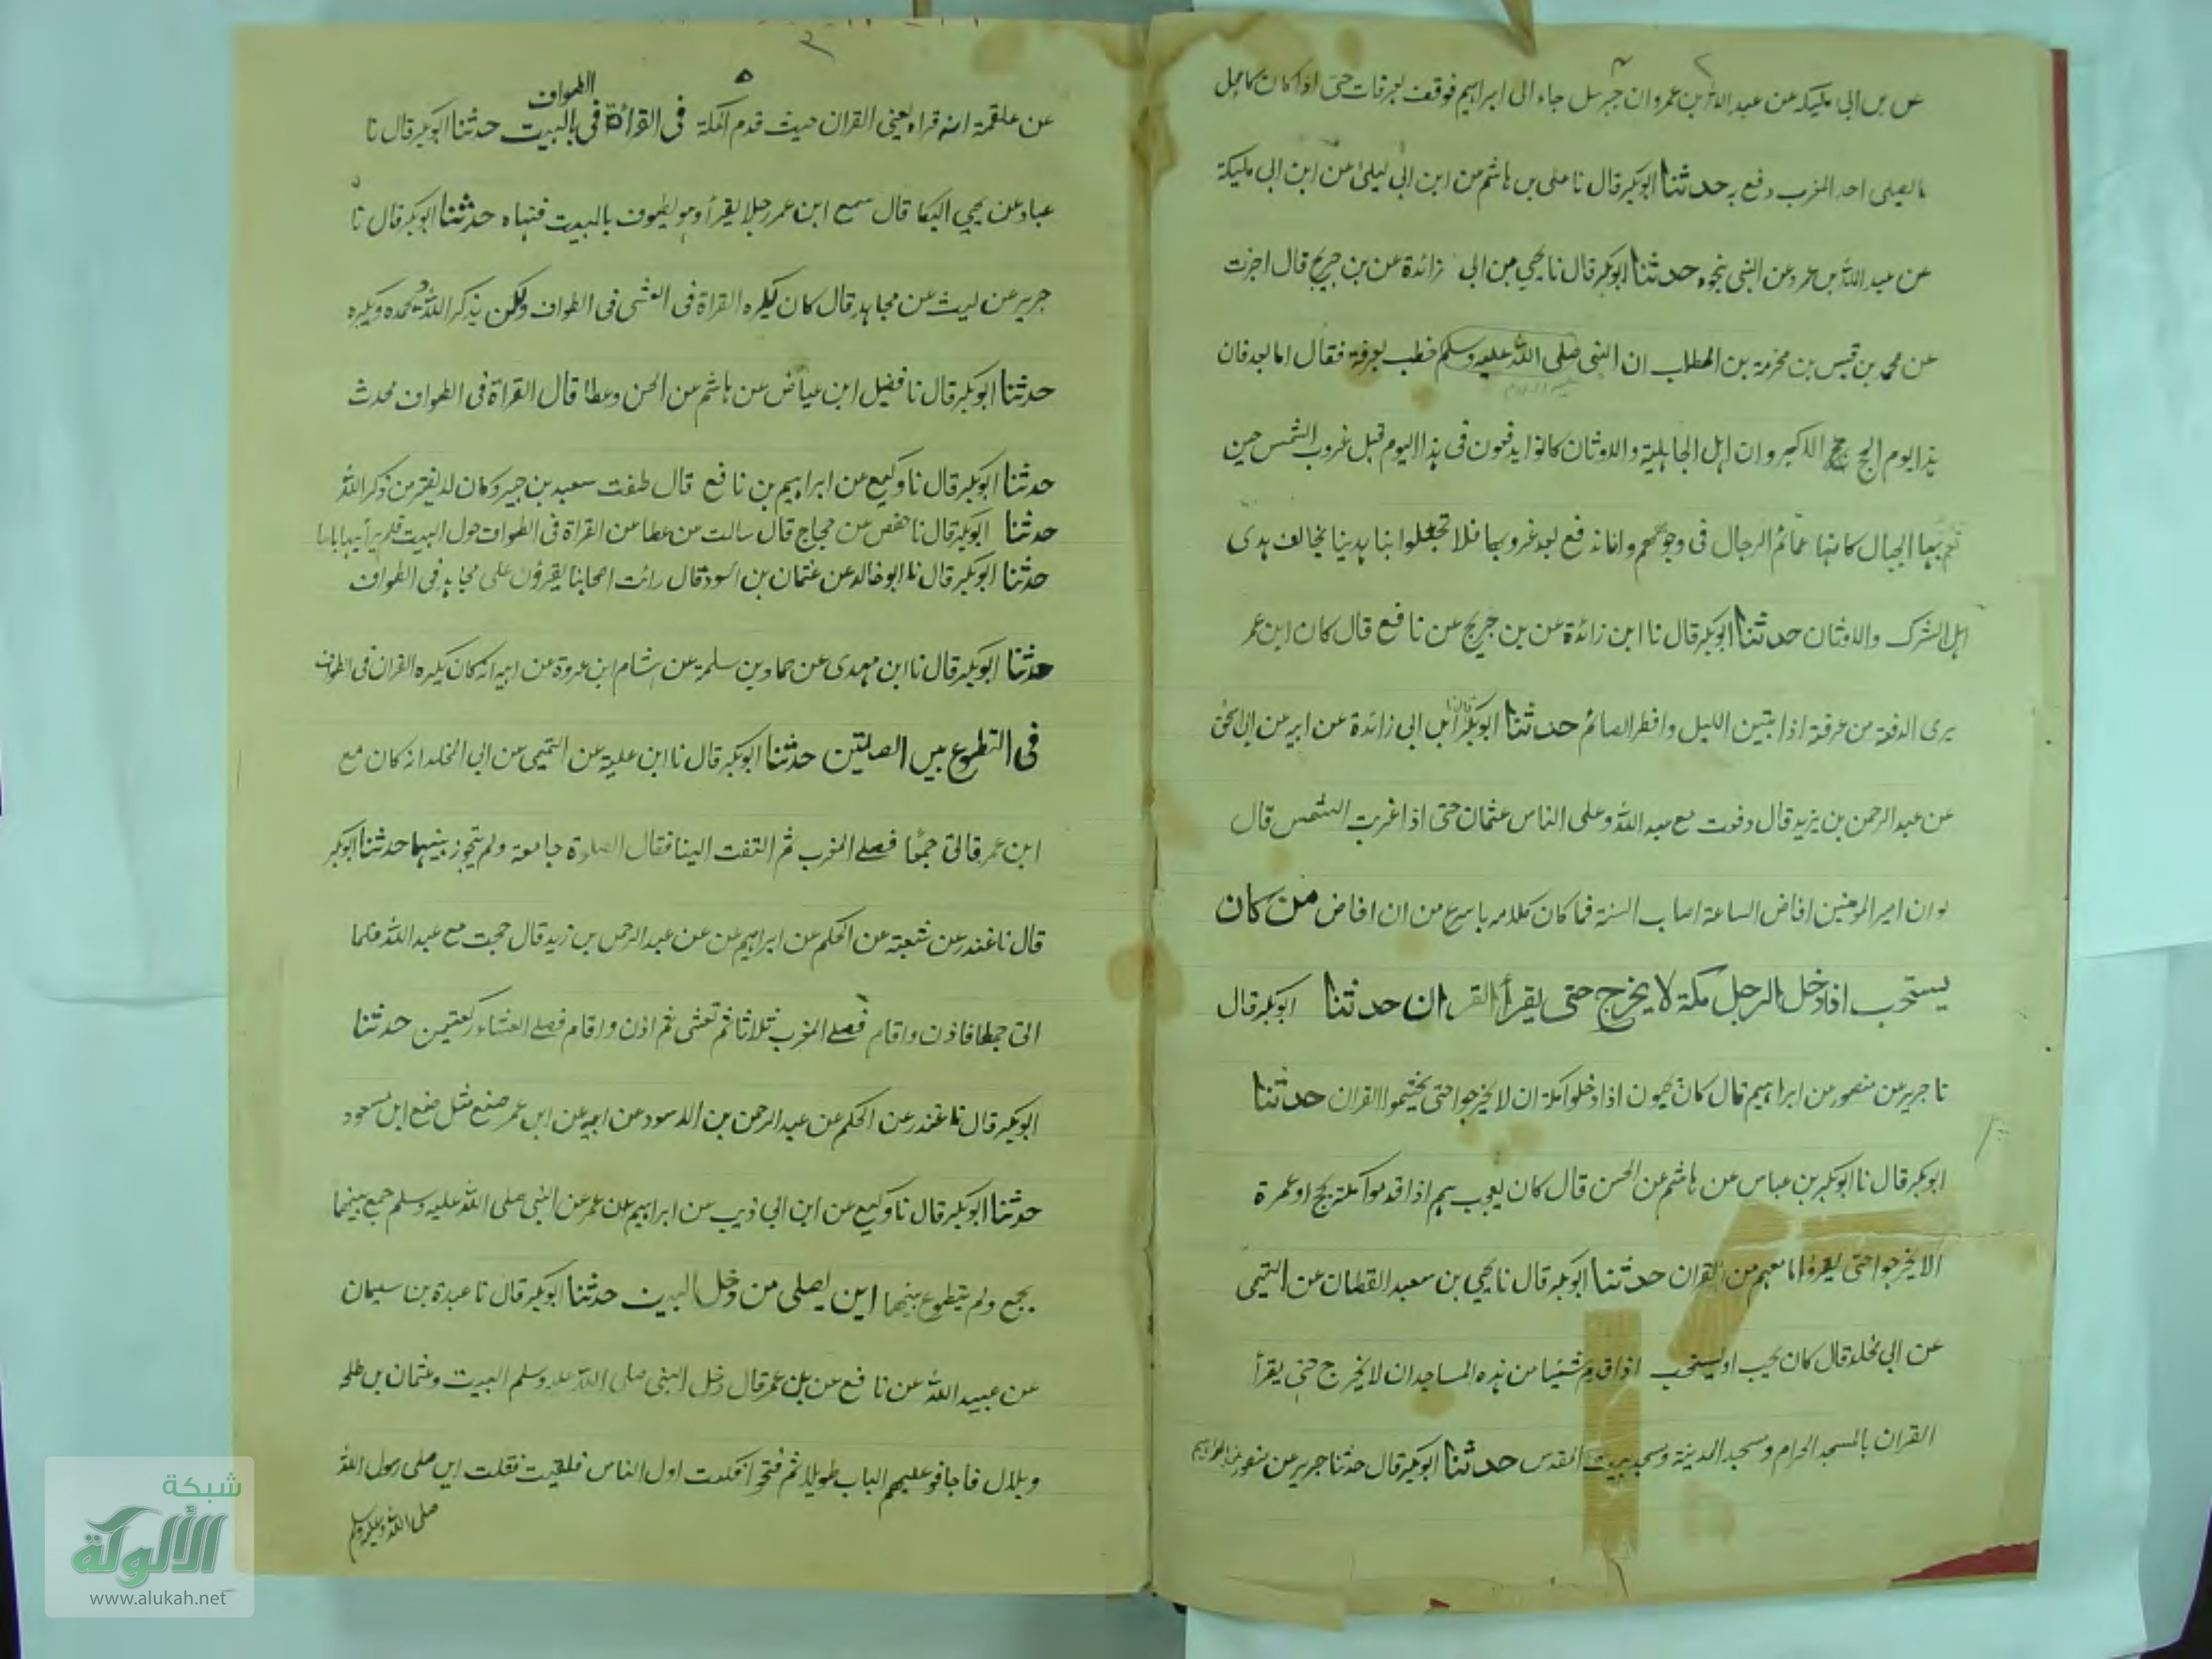 عن بن ابى مليكة عن عبد الله بن عمرو ان جبرئيل جاء الى ابراهيم فوقف بعرفات حتى اذا كان كاعجل
ما يصلى احد المغرب دفع به حدثنا ابوبكر قال نا على بن هاشم عن ابن ابى ليلى عن ابن ابى مليكة
عن عبد الله بن عمرو عن النبى نحوه حدثنا ابوبكر قال نا يحيى بن ابى زائدة عن بن جريج قال اخبرت
عن محمد بن قيس بن مخرمة بن المطلب ان النبى صلى الله عليه وسلم خطب بعرفة فقال اما بعد فان
هذا يوم الحج الاكبر وان اهل الجاهلية والاوثان كانوا يدفعون فى هذا اليوم قبل غروب الشمس حين
تعم بها الجبال كانها عمائم الرجال فى وجوههم وانا ندفع بعد غروبها فلا تعجلوا بنا هدينا يخالف هدى
اهل الشرك والاوثان حدثنا ابوبكر قال نا ابن زائدة عن بن جريج عن نافع قال كان ابن عمر
يرى الدفعة من عرفة اذا تبين الليل وافطر الصائم حدثنا ابوبكر قال نا ابن ابى زائدة عن ابيه عن ابى اسحق
عن عبد الرحمن بن يزيد قال دفعت مع عبد الله وعلى الناس عثمان حتى اذا غربت الشمس قال
لو ان امير المومنين افاض الساعة اصاب السنة فما كان كلامه باسرع من ان افاض من كان
يستحب اذا دخل الرجل مكة لا يخرج حتى يقرأ القران حدثنا ابوبكر قال
نا جرير عن منصور عن ابراهيم قال كان يحبون اذا دخلوا مكة ان لا يخرجوا حتى يختموا القران حدثنا
ابوبكر قال نا ابوبكر بن عباس عن هاشم عن الحسن قال كان يعجب بهم اذا قدموا مكة بحج او عمرة
الا يخرجوا حتى يقرؤا ما معهم من القران حدثنا ابوبكر قال نا يحيى بن سعيد القطان عن التيمى
عن ابى مخلد قال كان يحب او يستحب اذا قدم شيئا من هذه المساجد ان لا يخرج حتى يقرأ
القران بالمسجد الحرام ومسجد المدينة ومسجد بيت المقدس حدثنا ابوبكر قال حدثنا جرير عن منصور عن ابراهيم
٥
عن علقمة انه قراه يعنى القران حيث قدم مكة فى القرأة فى الطواف بالبيت حدثنا ابوبكر قال نا
عباد عن يحيى البكا قال سمع ابن عمر رجلا يقرأ وهو يطوف بالبيت فنهاه حدثنا ابوبكر قال نا
جرير عن ليث عن مجاهد قال كان يكره القراة فى المشى فى الطواف ولكن يذكر الله ويحمده ويكبره
حدثنا ابوبكر قال نا فضيل ابن عياض عن هاشم عن الحسن وعطا قال القراة فى الطواف محدث
حدثنا ابوبكر قال نا وكيع عن ابراهيم بن نافع قال طفت سعيد بن جبير وكان لا يفتر من ذكر الله
حدثنا ابوبكر قال نا حفص عن حجاج قال سالت من عطا من القراة فى الطواف حول البيت فلم ير بها باسا
حدثنا ابوبكر قال نا ابو خالد عن عثمان بن اسود قال رائت اصحابنا يقرؤن على مجاهد فى الطواف
حدثنا ابوبكر قال نا ابن مهدى عن حماد بن سلمة عن هشام ابن عروة عن ابيه انه كان يكره القران فى الطواف
فى التطوع بين الصلتين حدثنا ابوبكر قال نا ابن علية عن التيمى عن ابى المخلد انه كان مع
ابن عمر قاتى جمعا فصلے المغرب ثم التفت الينا فقال الصلوة جامعة ولم يتجوز بينهما حدثنا ابوبكر
قال نا غندر عن شعبة عن الحكم عن ابراهيم عن عن عبد الرحمن بن زيد قال حججت مع عبد الله فلما
اتى جمعا فاذن واقام فصلے المغرب ثلاثا ثم تعشى ثم اذن واقام فصلے العشاء ركعتين حدثنا
ابوبكر قال نا غندر عن الحكم عن عبد الرحمن بن الاسود عن ابيه عن ابن عمر صنع مثل صنع ابن مسعود
حدثنا ابوبكر قال نا وكيع عن ابن ابى ذيب عن ابراهيم عن عمر عن النبى صلى الله عليه وسلم جمع بينهما
بجمع ولم يتطوع بينهما اين يصلى من دخل البيت حدثنا ابوبكر قال نا عبدة بن سليمان
عن عبيد الله عن نافع عن بن عمر قال دخل النبى صلى الله عليه وسلم البيت وعثمان بن طلحة
وبلال فاجافو عليهم الباب طويلا ثم فتحوا فكنت اول الناس فلقيت فقلت اين صلى رسول الله
صلى الله عليه وسلم
شبكة
الألوكة
www.alukah.net